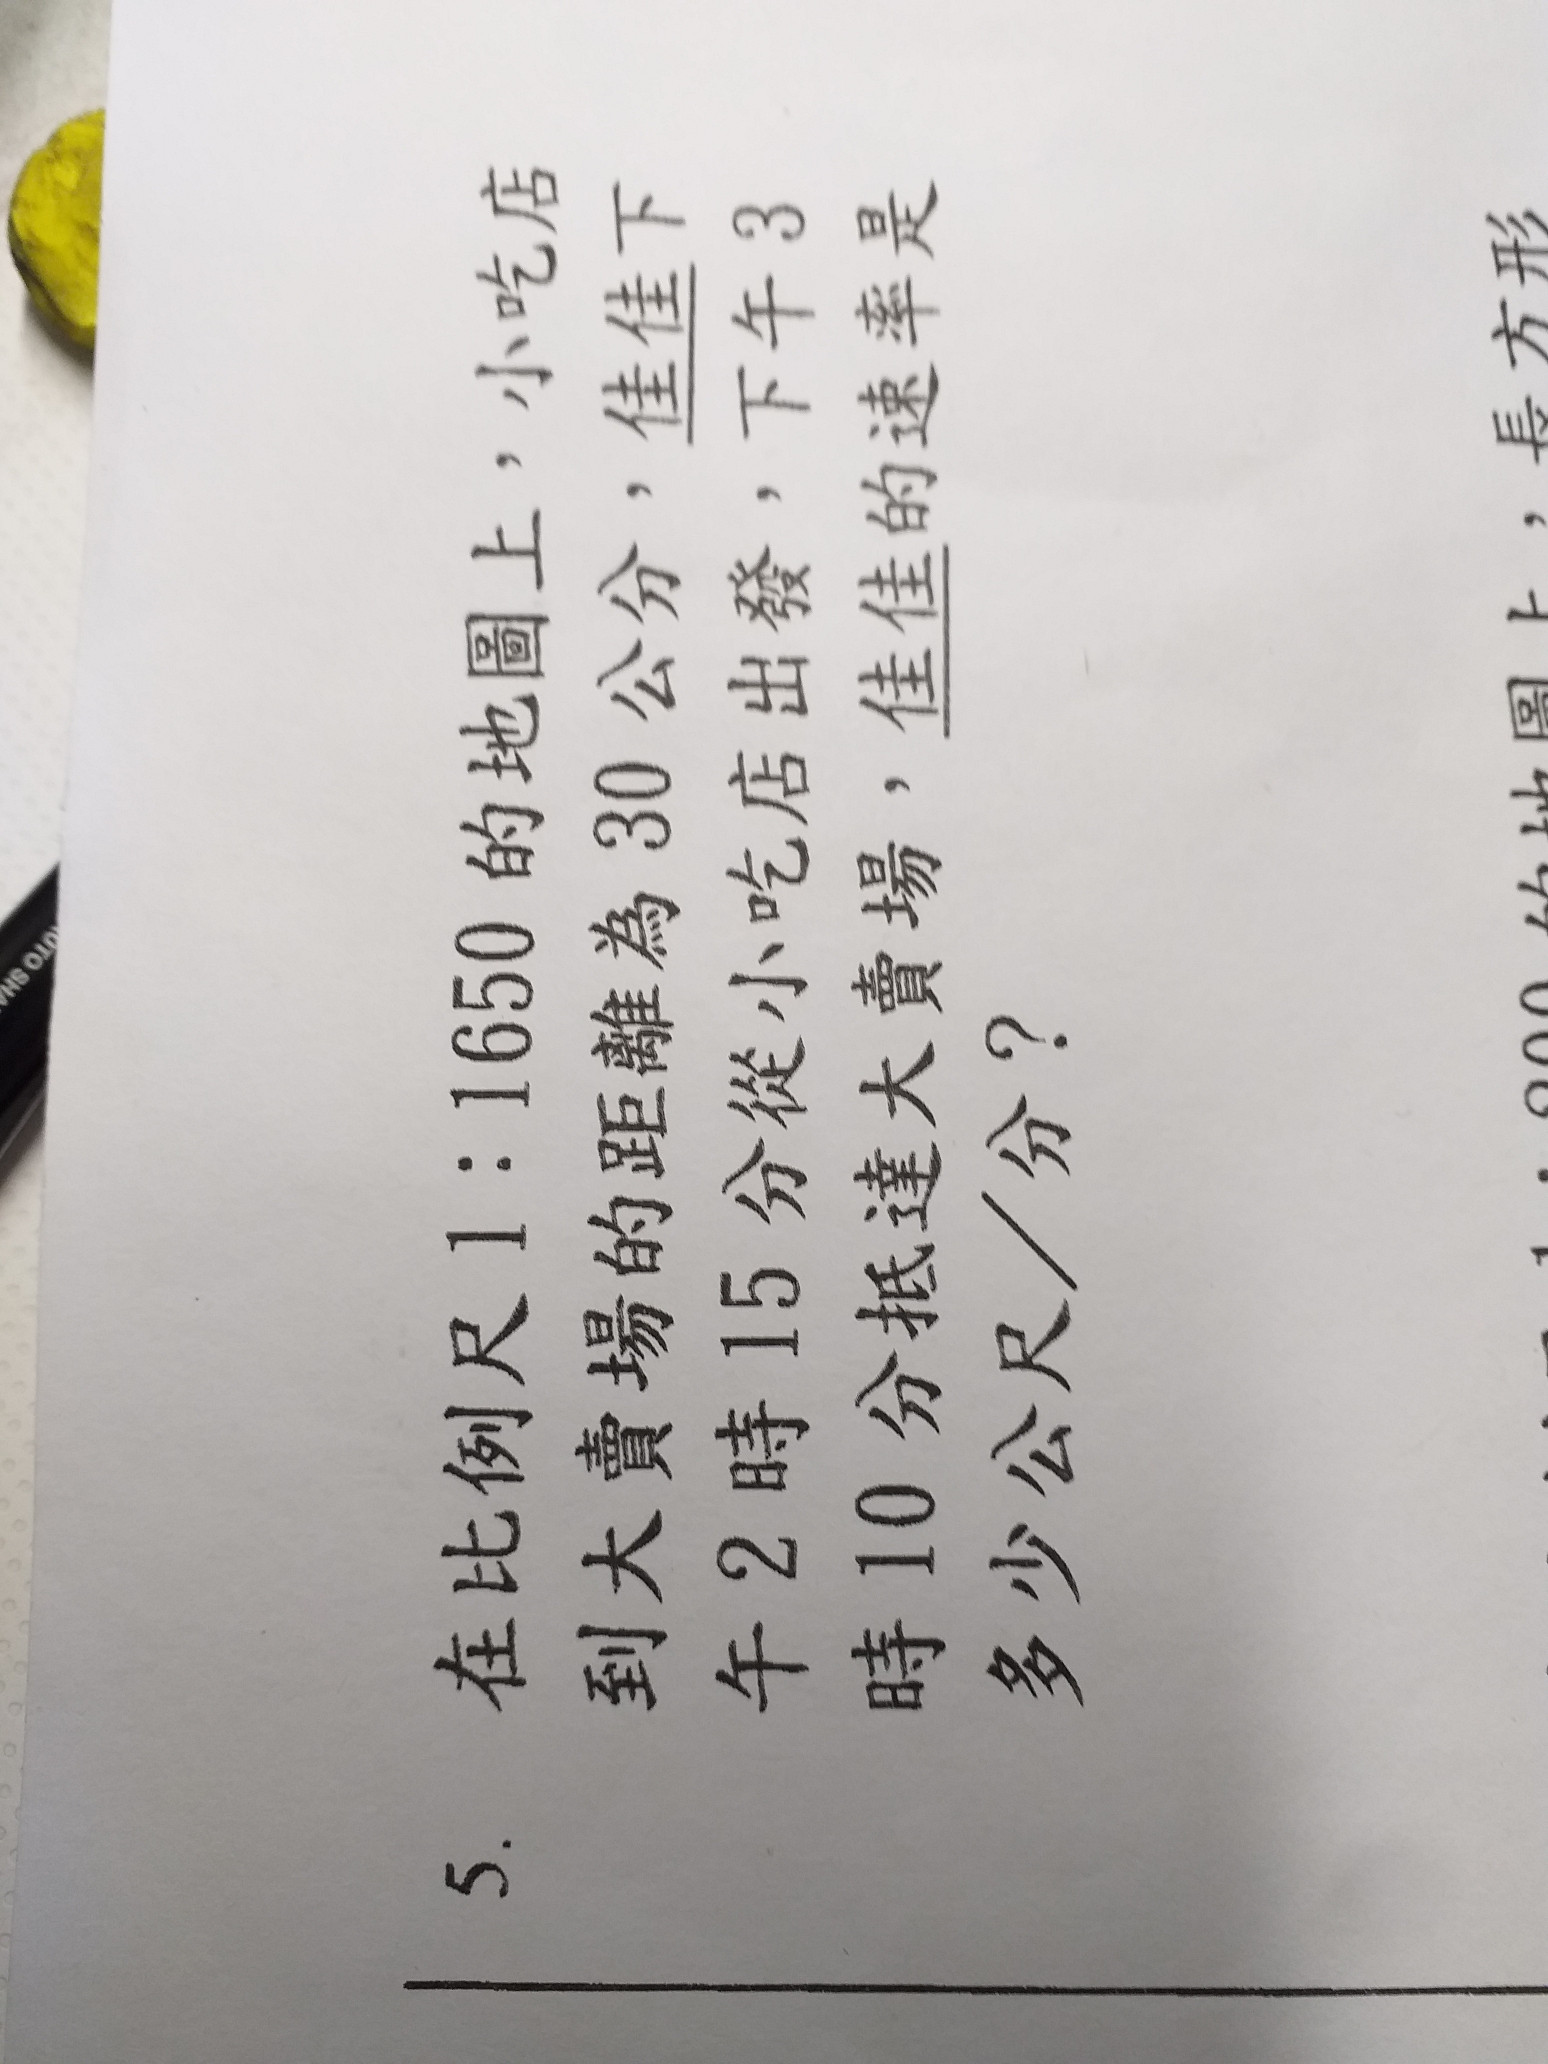 5. 在比例尺 1：1650 的地圖上，小吃店
到大賣場的距離為 30 公分，佳佳下
午 2 時 15 分從小吃店出發，下午 3
時 10 分抵達大賣場，佳佳的速率是
多少公尺／分？
的地圖上，長方形